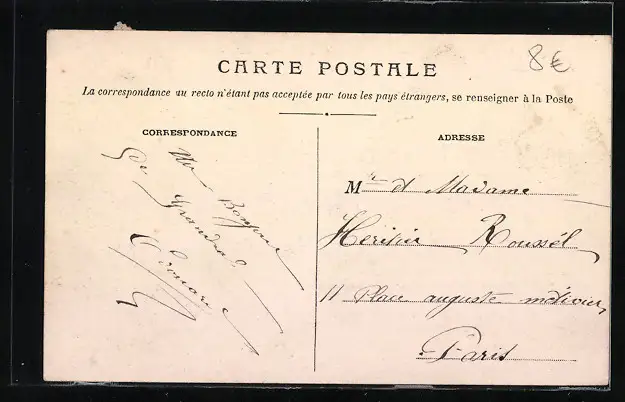 8€
CARTE POSTALE
La correspondance au recto n'étant pas acceptée par tous les pays étrangers, se renseigner à la Poste
CORRESPONDANCE
Un Bonjour
du Grandad
Edouard
ADRESSE
Mr et Madame
Heritier Roussel
11 Place auguste métivier
Paris